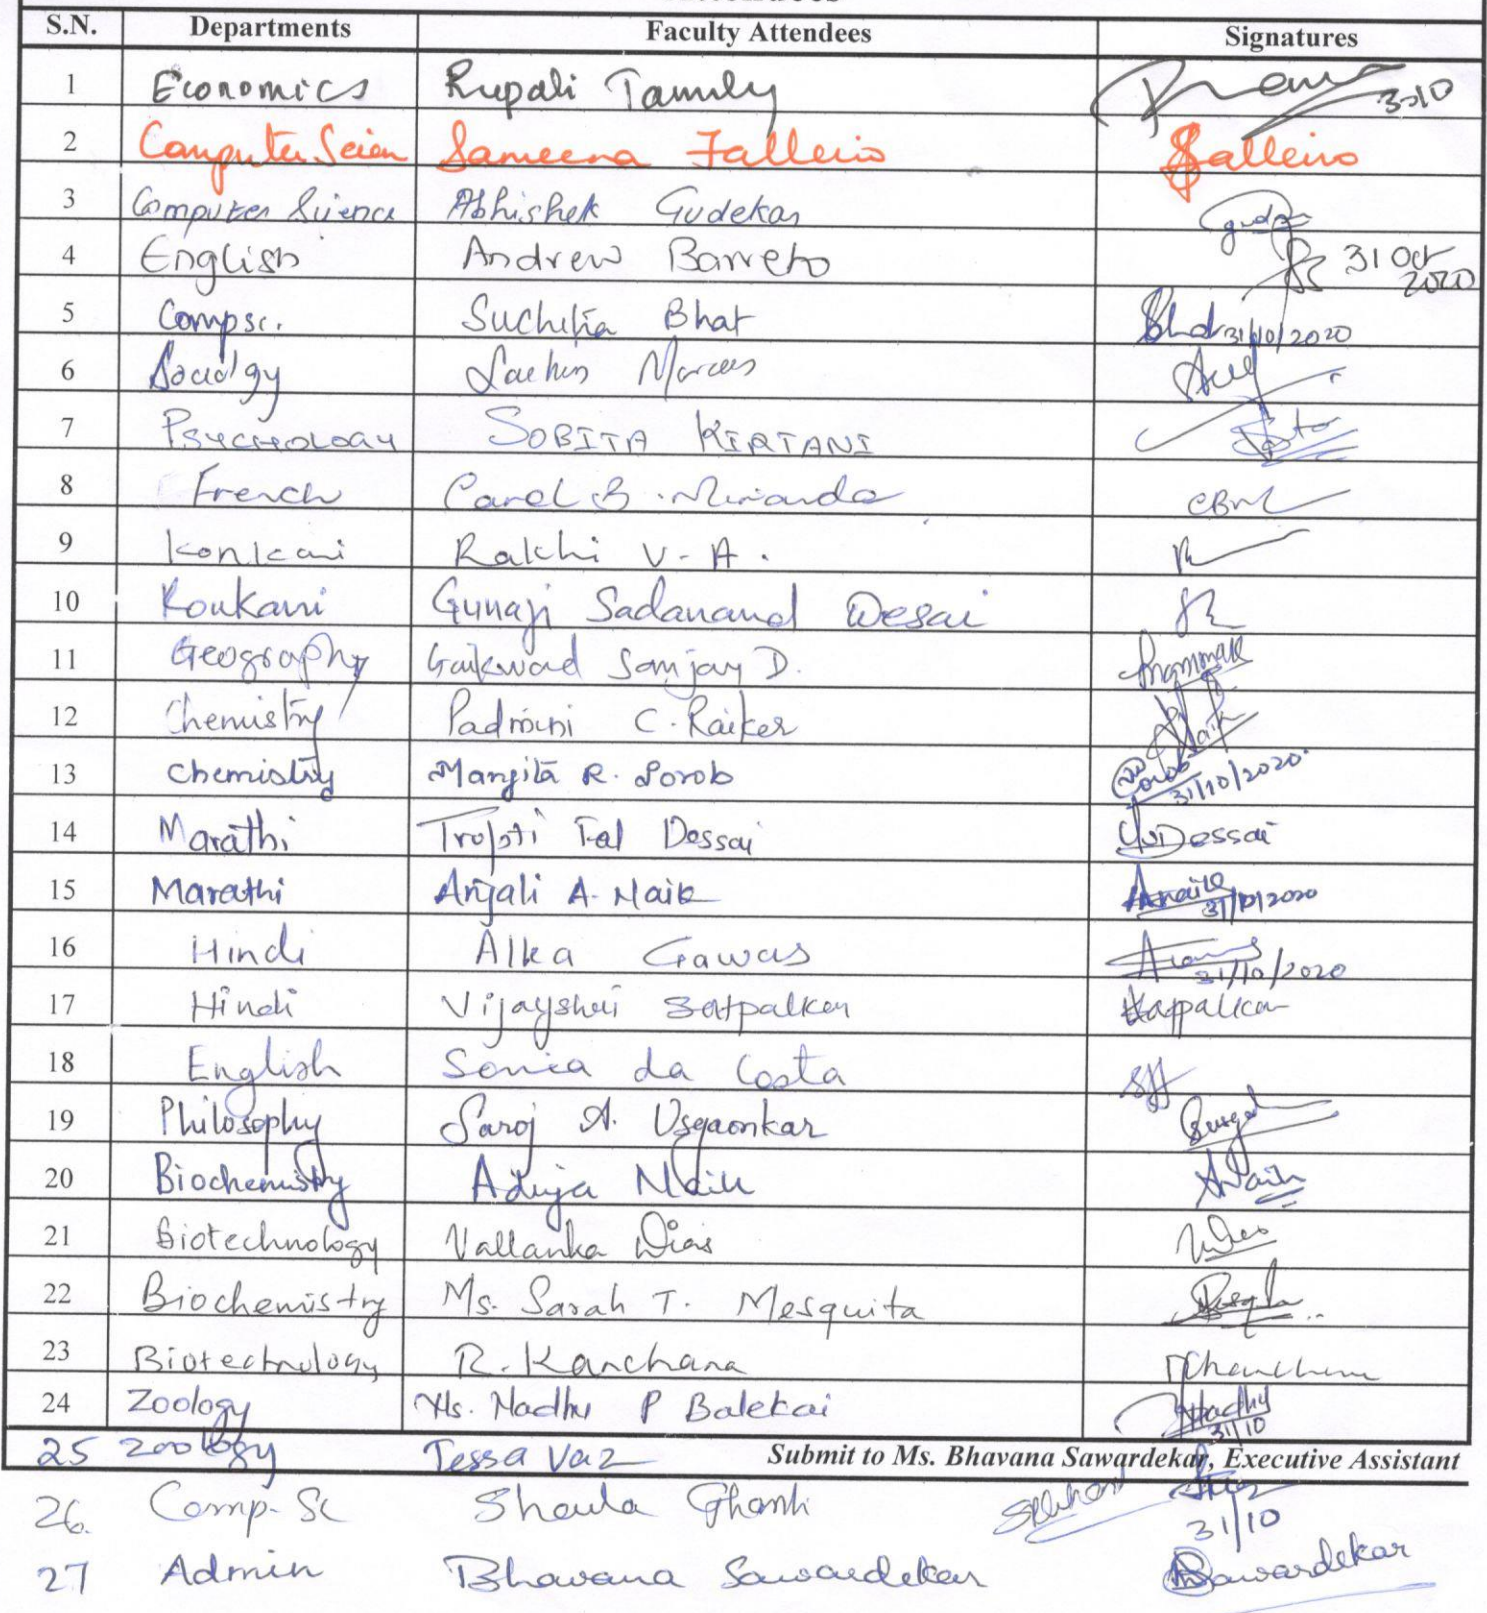 S.N. Departments Faculty Attendees Signatures
1 Economics Rupali Tamuly 31-10
2 Computer Scien Sameena Falleiro Falleiro
3 Computer Science Abhishek Gudekar
4 English Andrew Barreto 31 Oct 2020
5 Compsc. Suchitra Bhat Bhat 31/10/2020
6 Sociology Sachin
7 PSYCHOLOGY SOBITA KIRTANI
8 French Carol B. Miranda CBM
9 Konkani Rakhi V-A.
10 Konkani Gunaji Sadanand Desai
11 Geography Gaikwad Sanjay D.
12 Chemistry Padmini C. Raiker
13 Chemistry Mangita R. Porob Porob 31/10/2020
14 Marathi Trupti Fal Dessai Dessai
15 Marathi Anjali A. Naik ANaik 31/10/2020
16 Hindi Alka Gawas 31/10/2020
17 Hindi Vijayshri Satpalkar Satpalkar
18 English Sonia da Costa
19 Philosophy Saroj A. Usgaonkar
20 Biochemistry Aduja Naik ANaik
21 Biotechnology Vallanka Dias
22 Biochemistry Ms. Sarah T. Mesquita
23 Biotechnology R. Kanchana
24 Zoology Ms. Madhu P Balekai Madhu 31/10
25 Zoology Tessa Vaz Submit to Ms. Bhavana Sawardekar, Executive Assistant
26. Comp. Sc Shaula Ghanti 31/10
27 Admin Bhavana Sawardekar BSawardekar